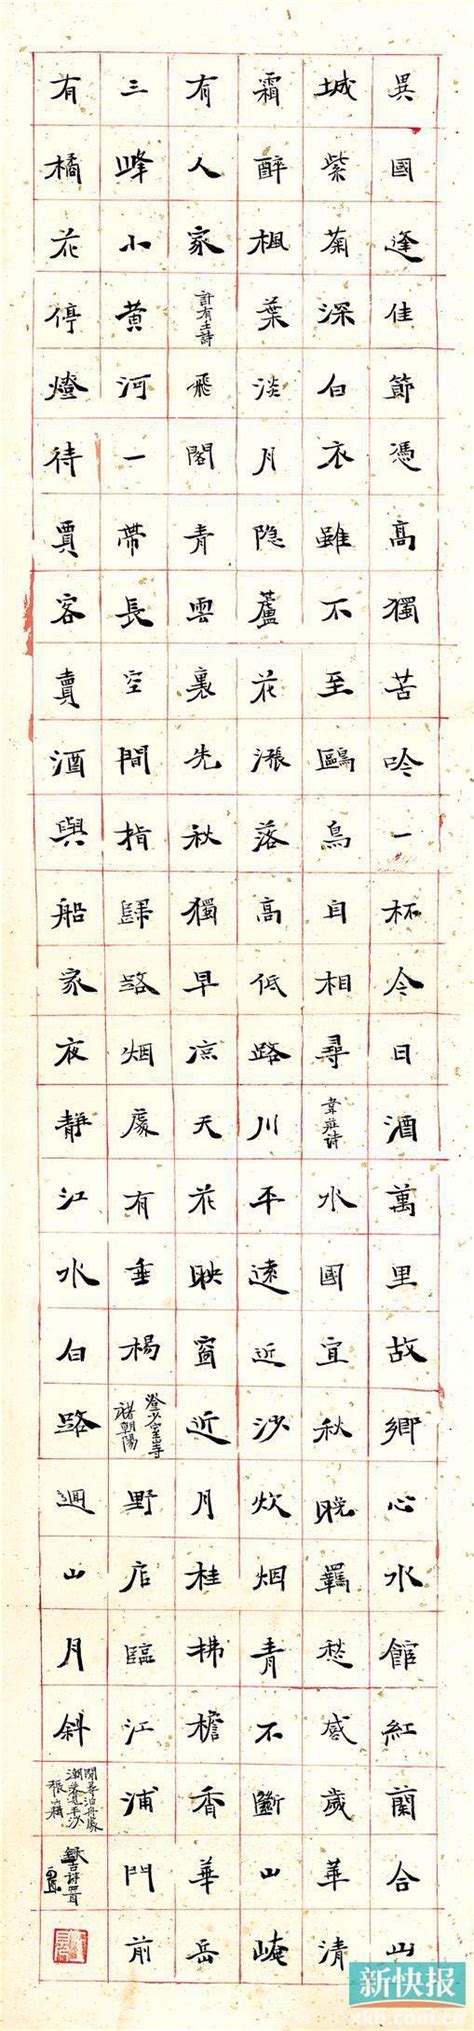 異國逢佳節憑高獨苦吟一杯今日酒萬里故鄉心水館紅蘭合山
城紫菊深白衣雖不至鷗鳥自相尋韋莊詩水國宜秋晚羈愁感歲華清
霜醉楓葉淡月隐蘆花漲落高低路川平遠近沙炊烟青不斷山崦
有人家計有詩飛閣青雲裏先秋獨早凉天花映窗近月桂拂檐香華岳
三峰小黄河一帶長空間指歸路烟處有垂楊登少室寺褚朝陽野店臨江浦門前
有橘花停燈待賈客賣酒與船家夜靜江水白路迴山月斜閑尋泊舟處潮落見平沙張籍
錄古詩
新快报
xkb.com.cn